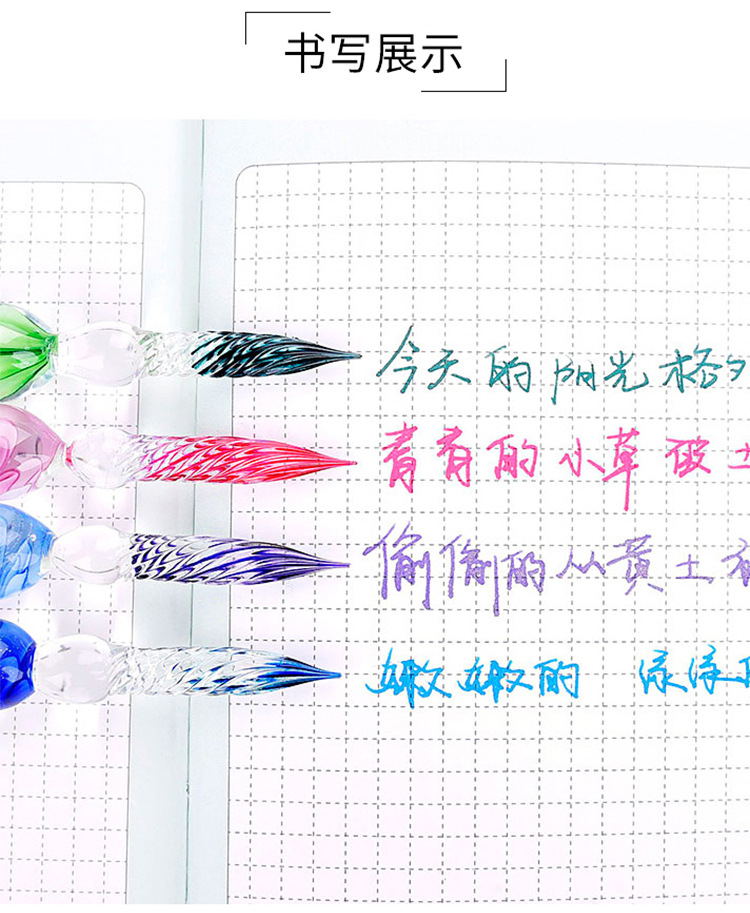 书写展示
今天的阳光格
青青的小草破土
偷偷的从黄土
嫩嫩的 绿绿